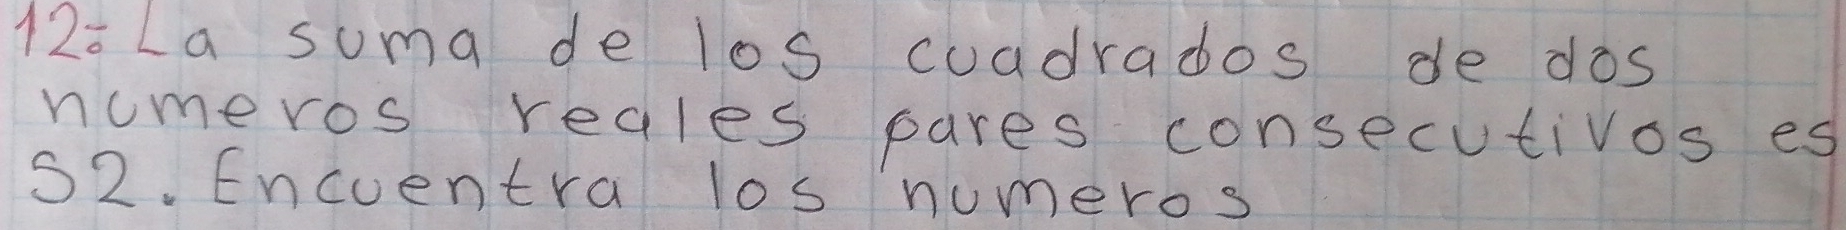 12: La suma de los cuadrados de dos
numeros reales pares consecutivos es
52. Encuentra los numeros